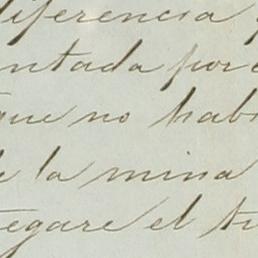 diferencia
ntada por
que no hab
de la mina
tegare el tu